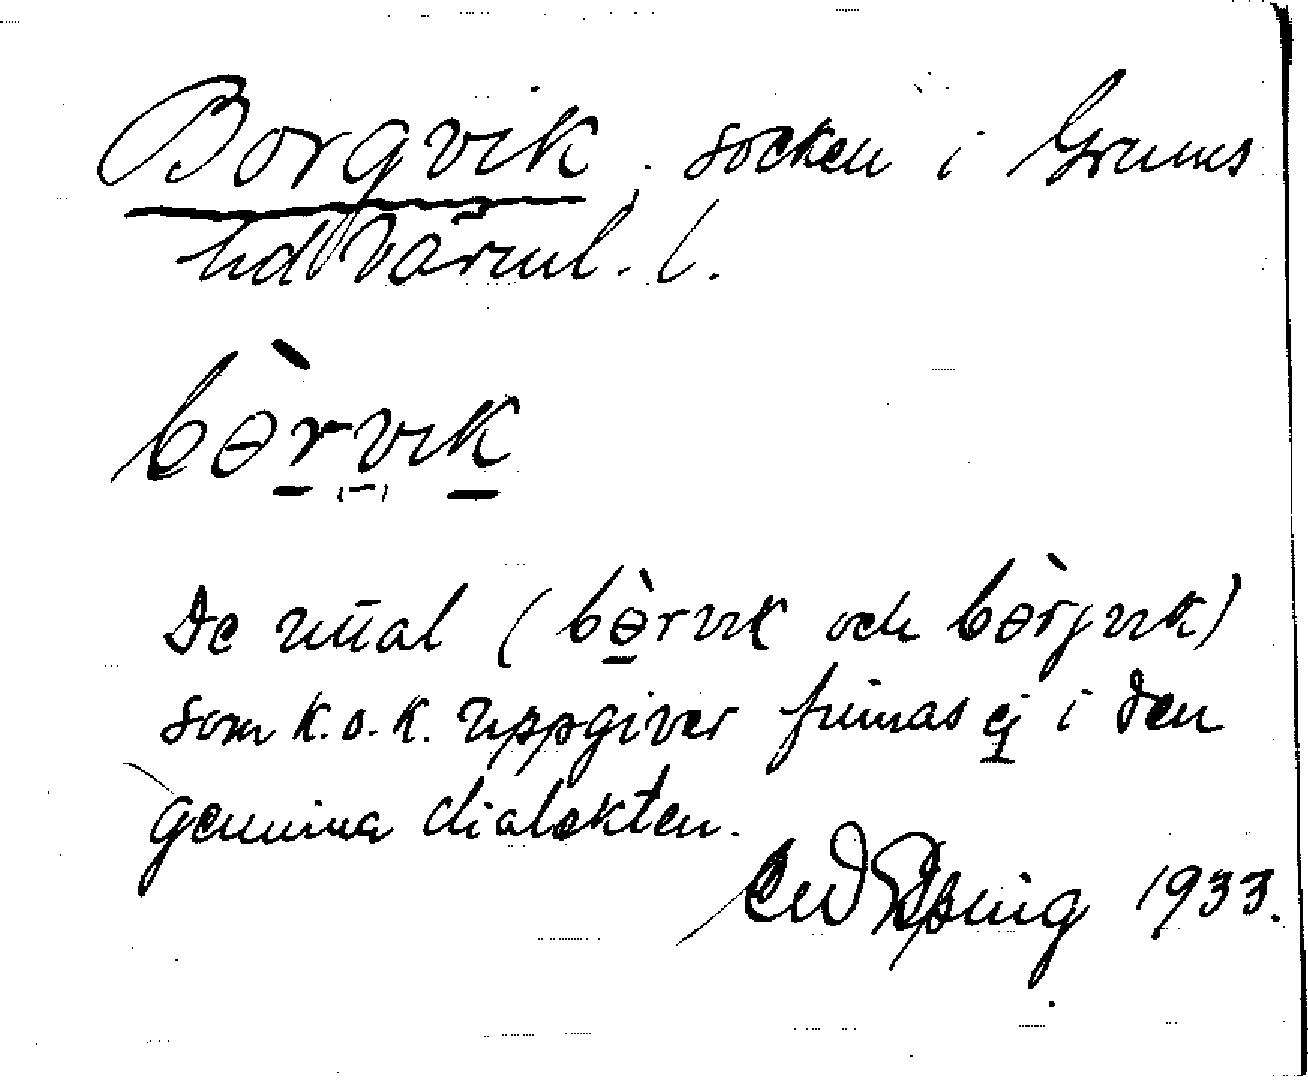 Borgvik, socken i Grums
hd Värml. l.
bə̀rvik
De uttal (bə̀rvik och bə̀rjvik)
som k.o.k. uppgiver finnas ej i den
genuina dialekten.
1933.